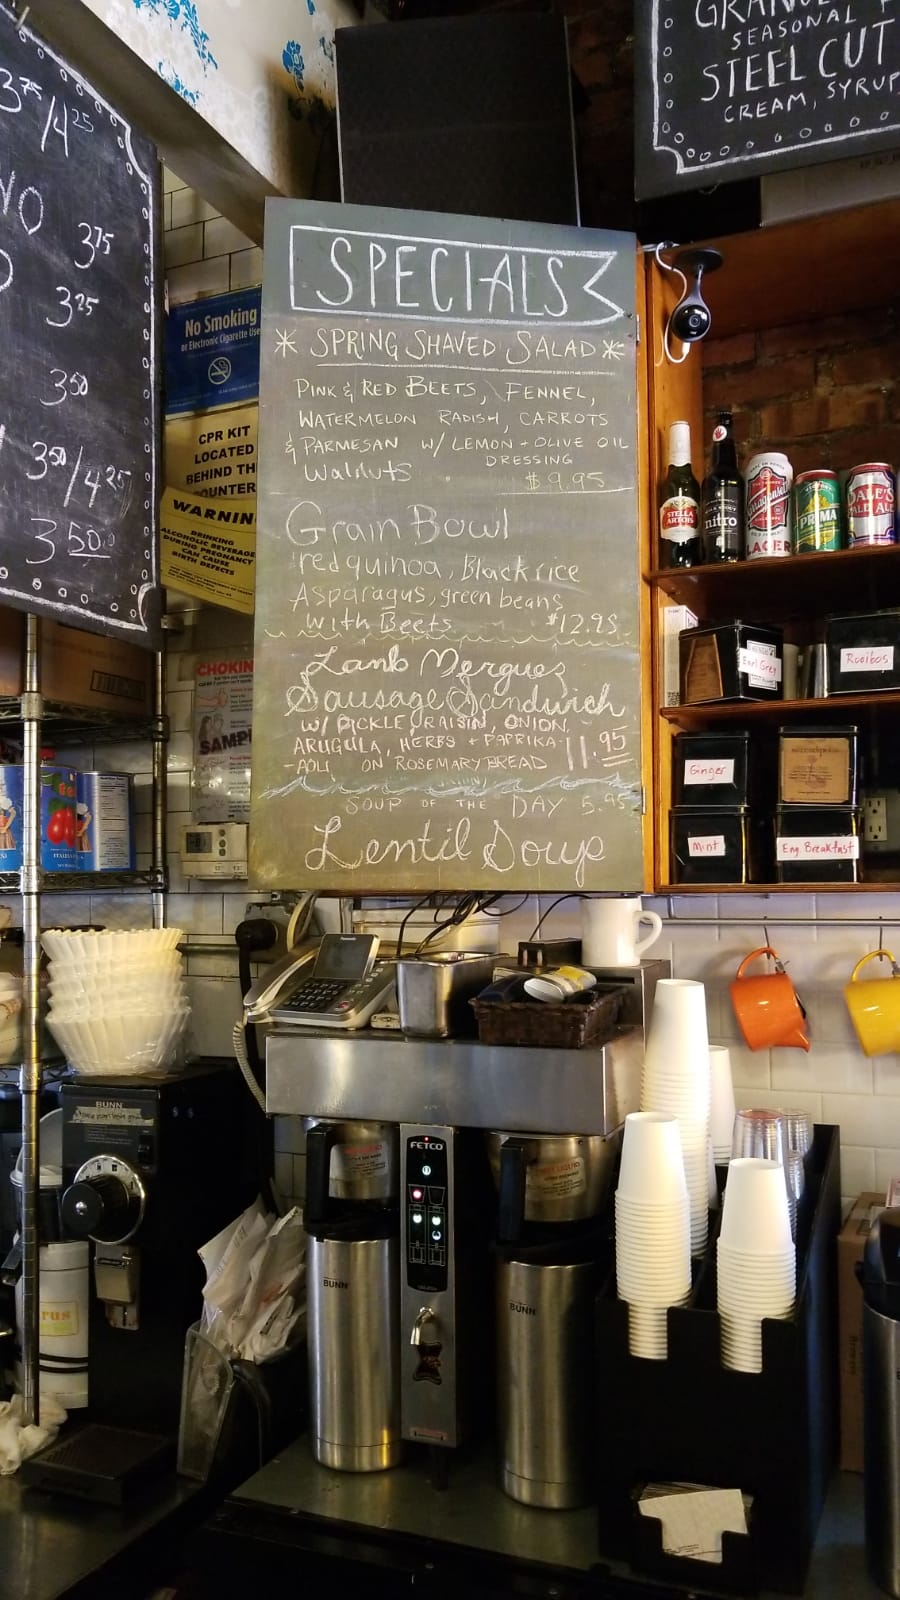 3.75/4.25
3.75
3.25
3.50
3.50/4.25
3.50
SEASONAL
STEEL CUT
CREAM, SYRUP
SPECIALS
* SPRING SHAVED SALAD *
PINK & RED BEETS, FENNEL,
WATERMELON RADISH, CARROTS
& PARMESAN W/ LEMON + OLIVE OIL
DRESSING
Walnuts $9.95
Grain Bowl
red quinoa, Black rice
Asparagus, green beans
with Beets $12.95
Lamb Merguez
Sausage Sandwich
W/ PICKLE, RAISIN, ONION,
ARUGULA, HERBS + PAPRIKA
-AOLI ON ROSEMARY BREAD 11.95
SOUP OF THE DAY 5.95
Lentil Soup
No Smoking
or Electronic Cigarette Use
CPR KIT
LOCATED
BEHIND TH
COUNTER
WARNIN
ALCOHOLIC BEVERAGE
DURING PREGNANCY
CAN CAUSE
BIRTH DEFECTS
CHOKIN
SAMP
STELLA
ARTOIS
nitro
LAGER
PRIMA
DALE'S
PALE ALE
Earl Grey
Rooibos
Ginger
Mint
Eng. Breakfast
Panasonic
BUNN
FETCO
BUNN
BUNN
rus